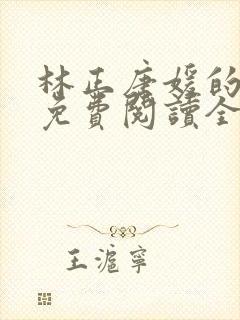 林正唐媛的
免費閱讀全
王滬寧